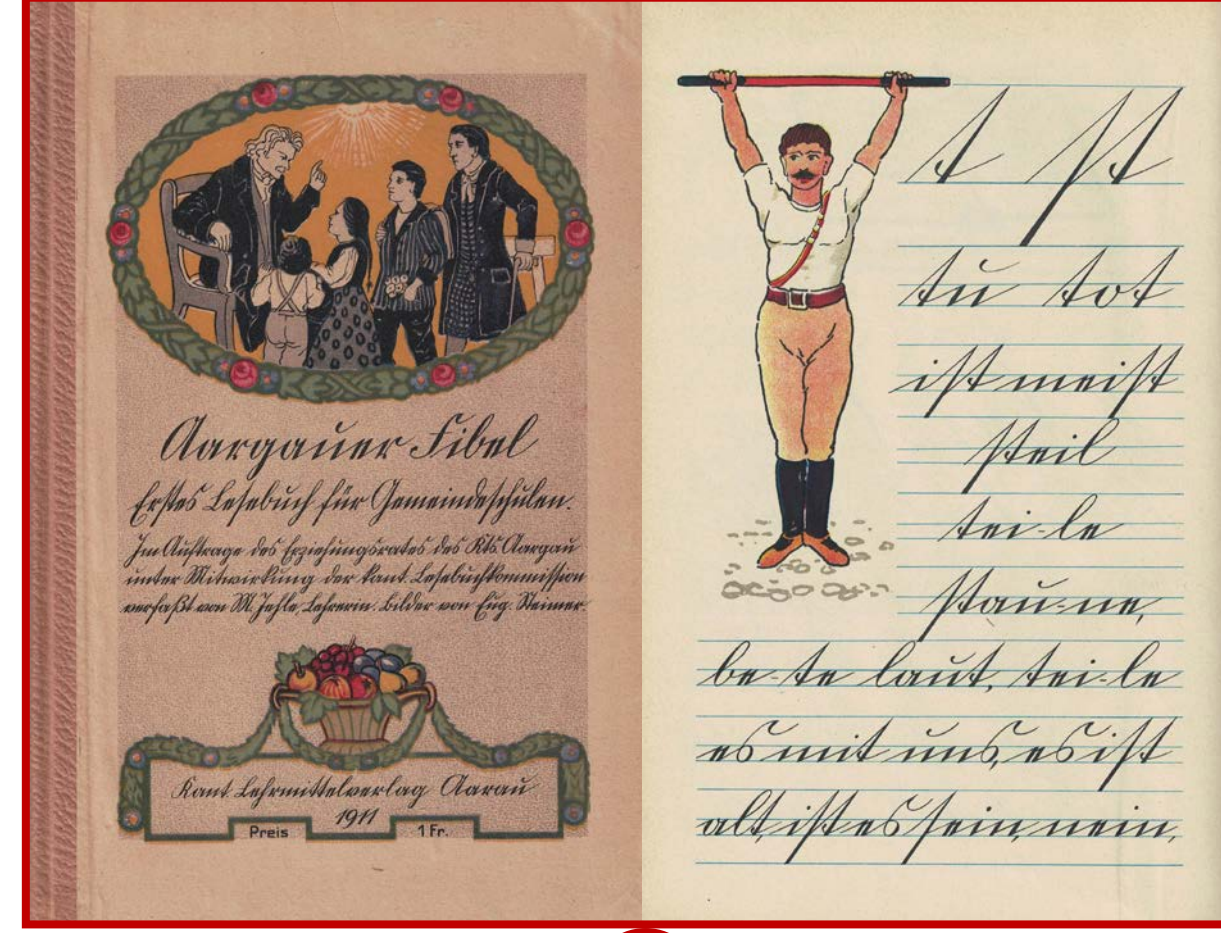 Aargauer Fibel
Erstes Lesebuch für Gemeindeschulen.
Im Auftrage des Erziehungsrates des Kts. Aargau
unter Mitwirkung der kant. Lesebuchkommission
verfaßt von M. Jehle, Lehrerin. Bilder von Eug. Steimer.
Kant. Lehrmittelverlag Aarau
1911
Preis 1 Fr.
t st
tu tot
ist meist
steil
tei-le
stau-ne,
be-te laut, tei-le
es mit uns, es ist
alt, ist es sein, nein,